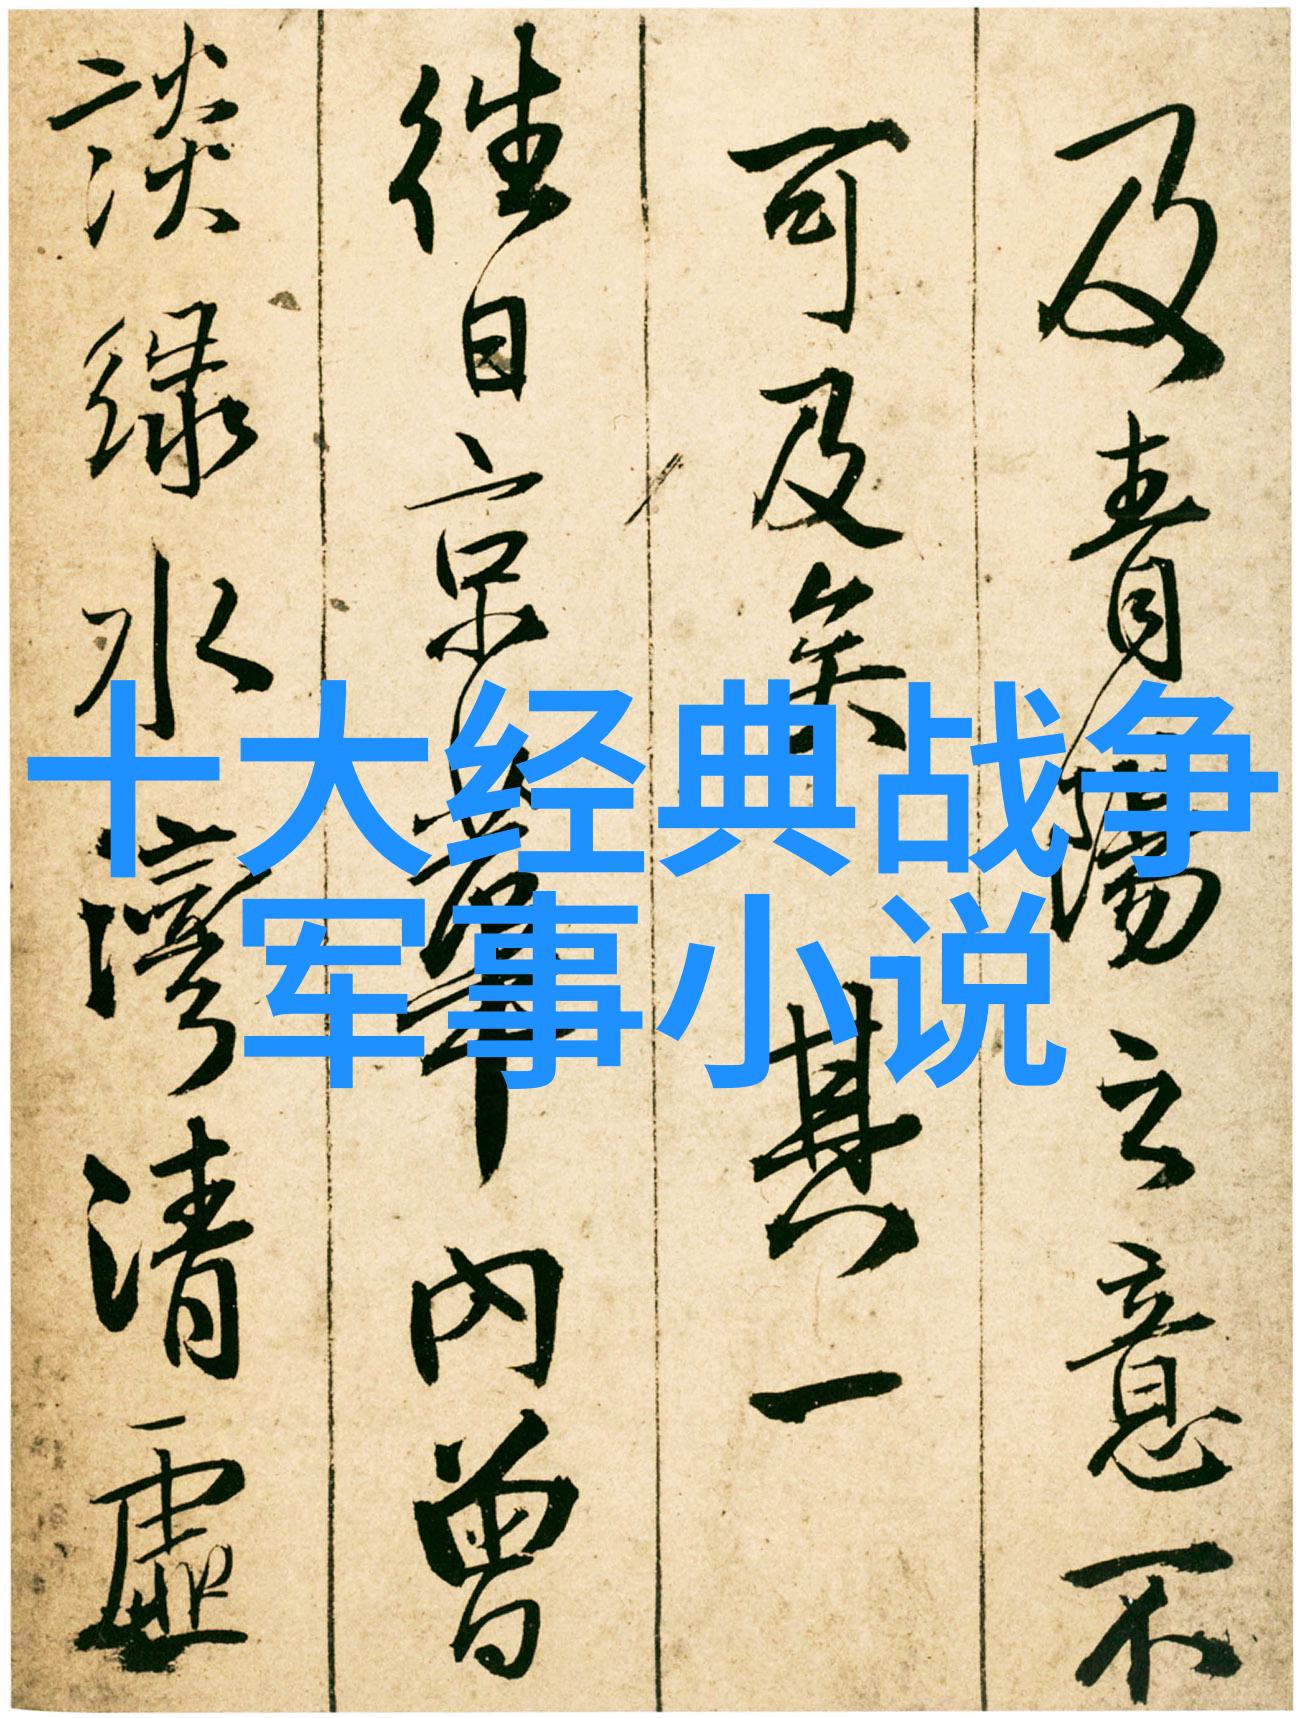 及青陽之意不
可及矣 其一
往日京華內曾
談綠水灣清虛
十大经典战争
军事小说